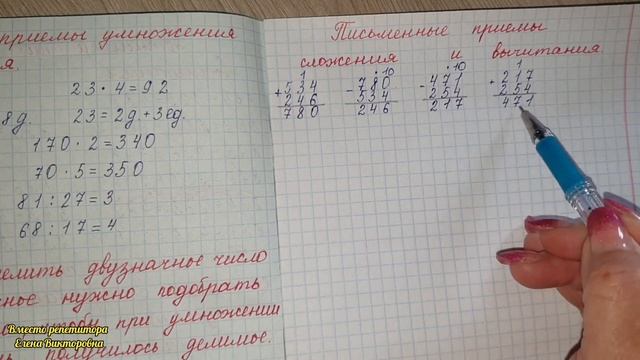 приемы умножения
я.
23·4=92
8д. 23=2д.+3ед.
170·2=340
70·5=350
81:27=3
68:17=4
двузначное число
нужно подобрать
чтобы при умножении
получилось делимое.
Письменные приемы
сложения и вычитания.
1
+534
246
780
·10
-780
534
246
·10
-471
254
217
1
+217
254
471
Вместо репетитора
Елена Викторовна